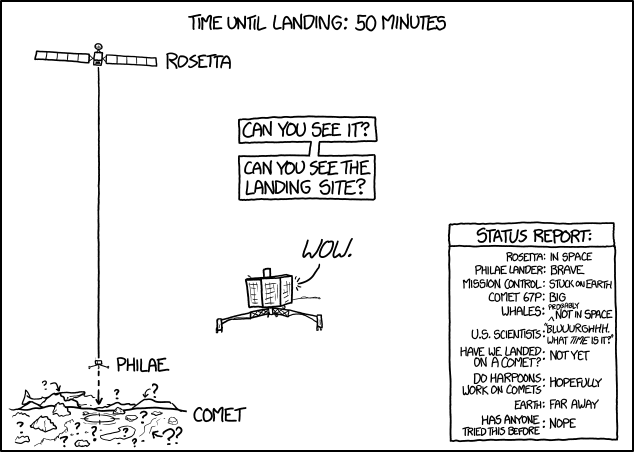 TIME UNTIL LANDING: 50 MINUTES
ROSETTA
CAN YOU SEE IT?
CAN YOU SEE THE
LANDING SITE?
WOW.
PHILAE
COMET
? ? ? ? ? ? ? ??
STATUS REPORT:
ROSETTA: IN SPACE
PHILAE LANDER: BRAVE
MISSION CONTROL: STUCK ON EARTH
COMET 67P: BIG
WHALES: PROBABLY
^ NOT IN SPACE
U.S. SCIENTISTS: "BLUUURGHHH.
WHAT TIME IS IT?"
HAVE WE LANDED
ON A COMET?: NOT YET
DO HARPOONS
WORK ON COMETS: HOPEFULLY
EARTH: FAR AWAY
HAS ANYONE
TRIED THIS BEFORE: NOPE